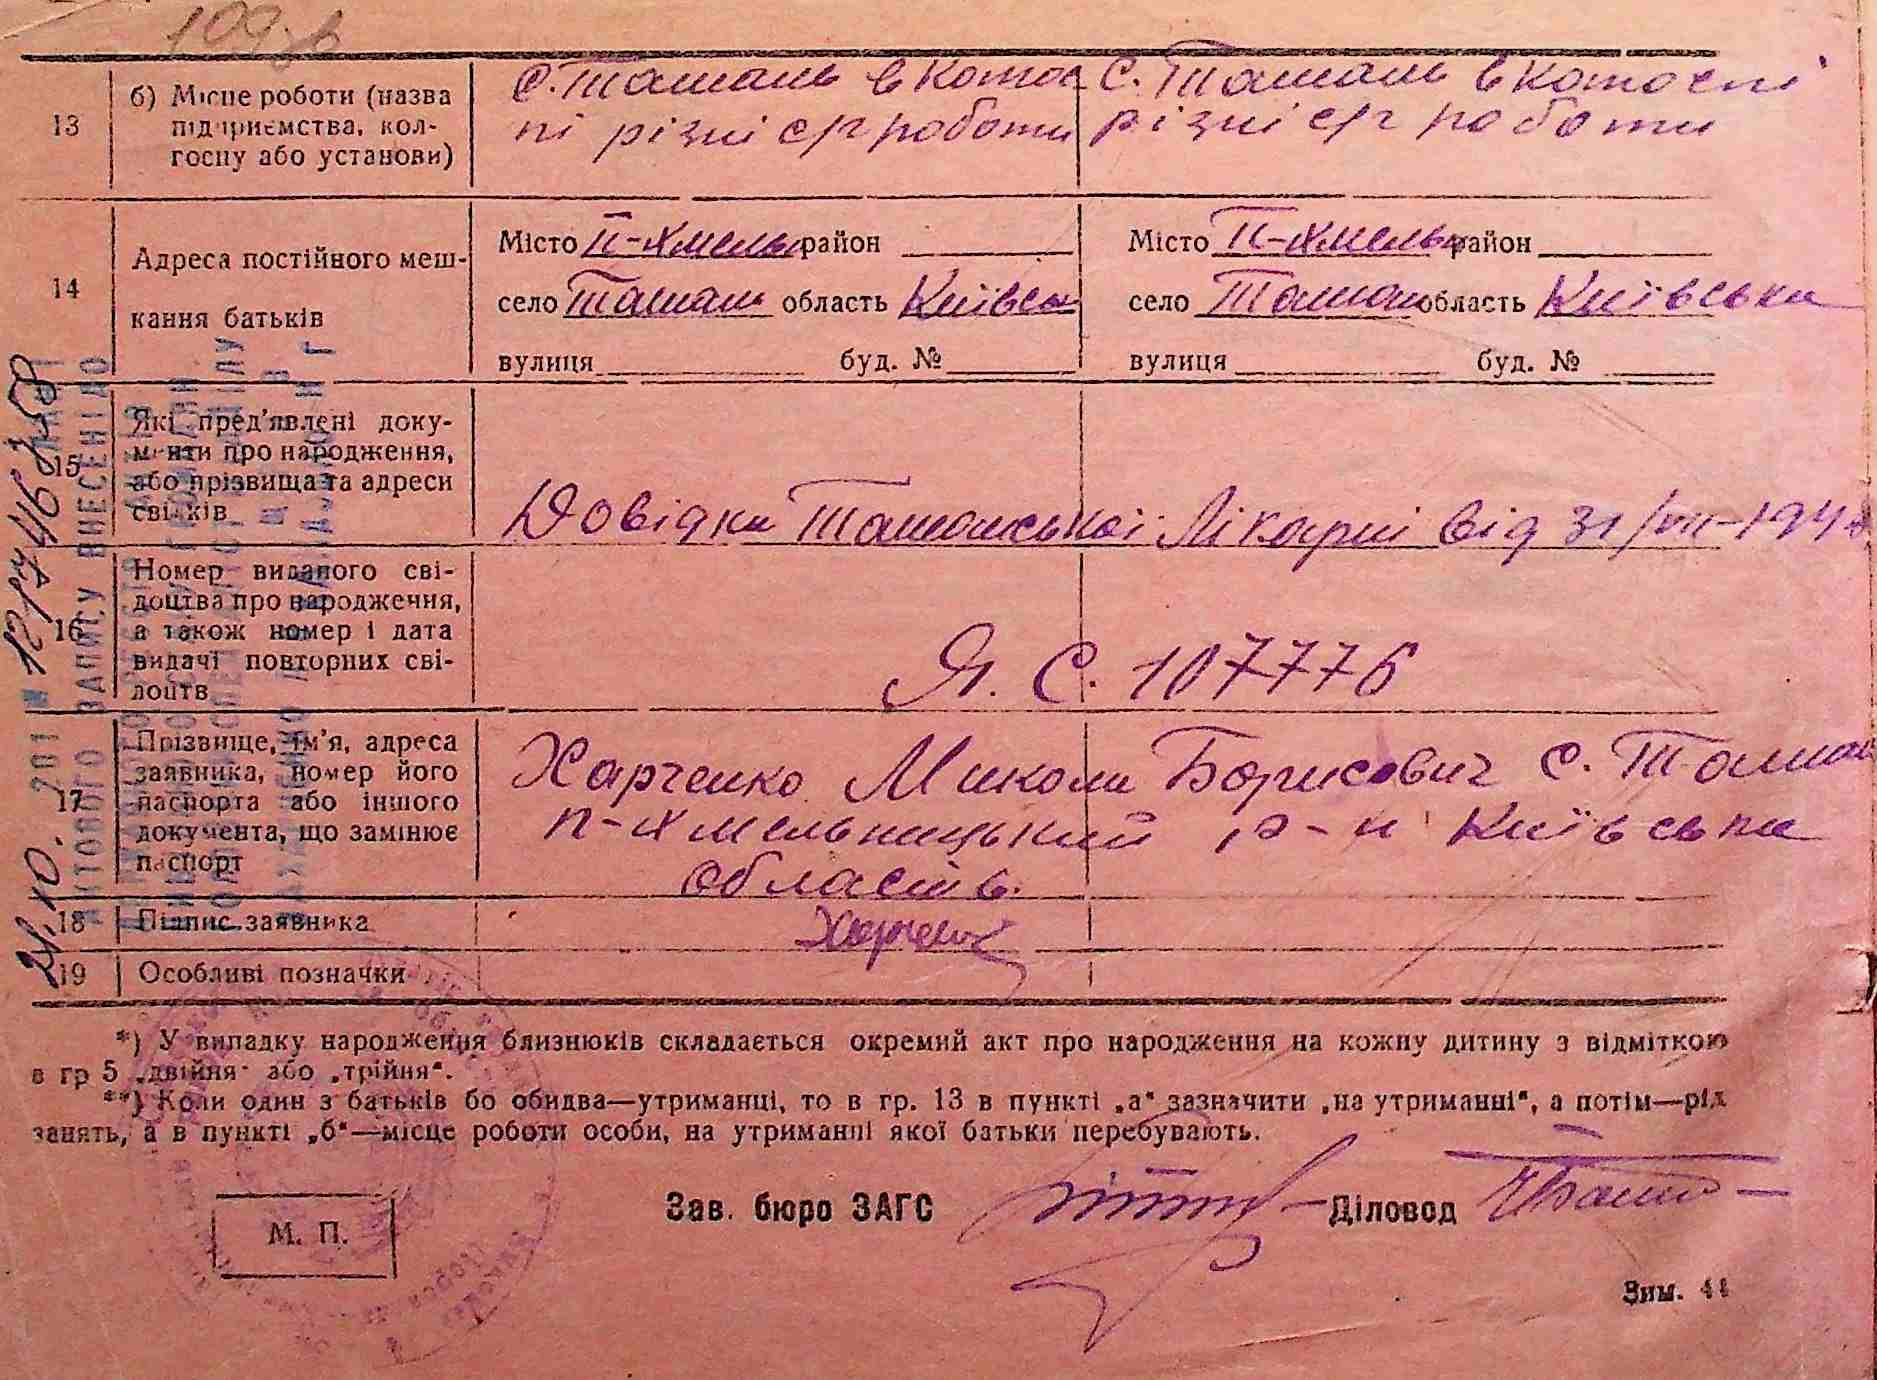 109 зв
13 б) Місце роботи (назва підприємства, колгоспу або установи)
с. Ташань в колгоспі різні с/г роботи
с. Ташань в колгоспі різні с/г роботи
14 Адреса постійного мешкання батьків
Місто П-Хмель район
село Ташань область Київськ
вулиця буд. №
Місто П-Хмель район
село Ташань область Київська
вулиця буд. №
15 Які пред'явлені документи про народження, або прізвища та адреси свідків
Довідка Ташанської Лікарні від 31/VII-194
16 Номер виданого свідоцтва про народження, а також номер і дата видачі повторних свідоцтв
Я. С. 107776
17 Прізвище, ім'я, адреса заявника, номер його паспорта або іншого документа, що замінює паспорт
Харченко Микола Борисович с. Ташань
П-Хмельницький р-н Київська
область.
18 Підпис заявника
Харченко
19 Особливі позначки
*) У випадку народження близнюків складається окремий акт про народження на кожну дитину з відміткою
в гр 5 „двійня" або „трійня".
**) Коли один з батьків бо обидва—утриманці, то в гр. 13 в пункті „а" зазначити „на утриманні", а потім—рід
занять, а в пункті „б"—місце роботи особи, на утриманні якої батьки перебувають.
М. П.
Зав. бюро ЗАГС
Діловод
Зим. 44
ЗАПИСУ ВНЕСЕНІ ДО